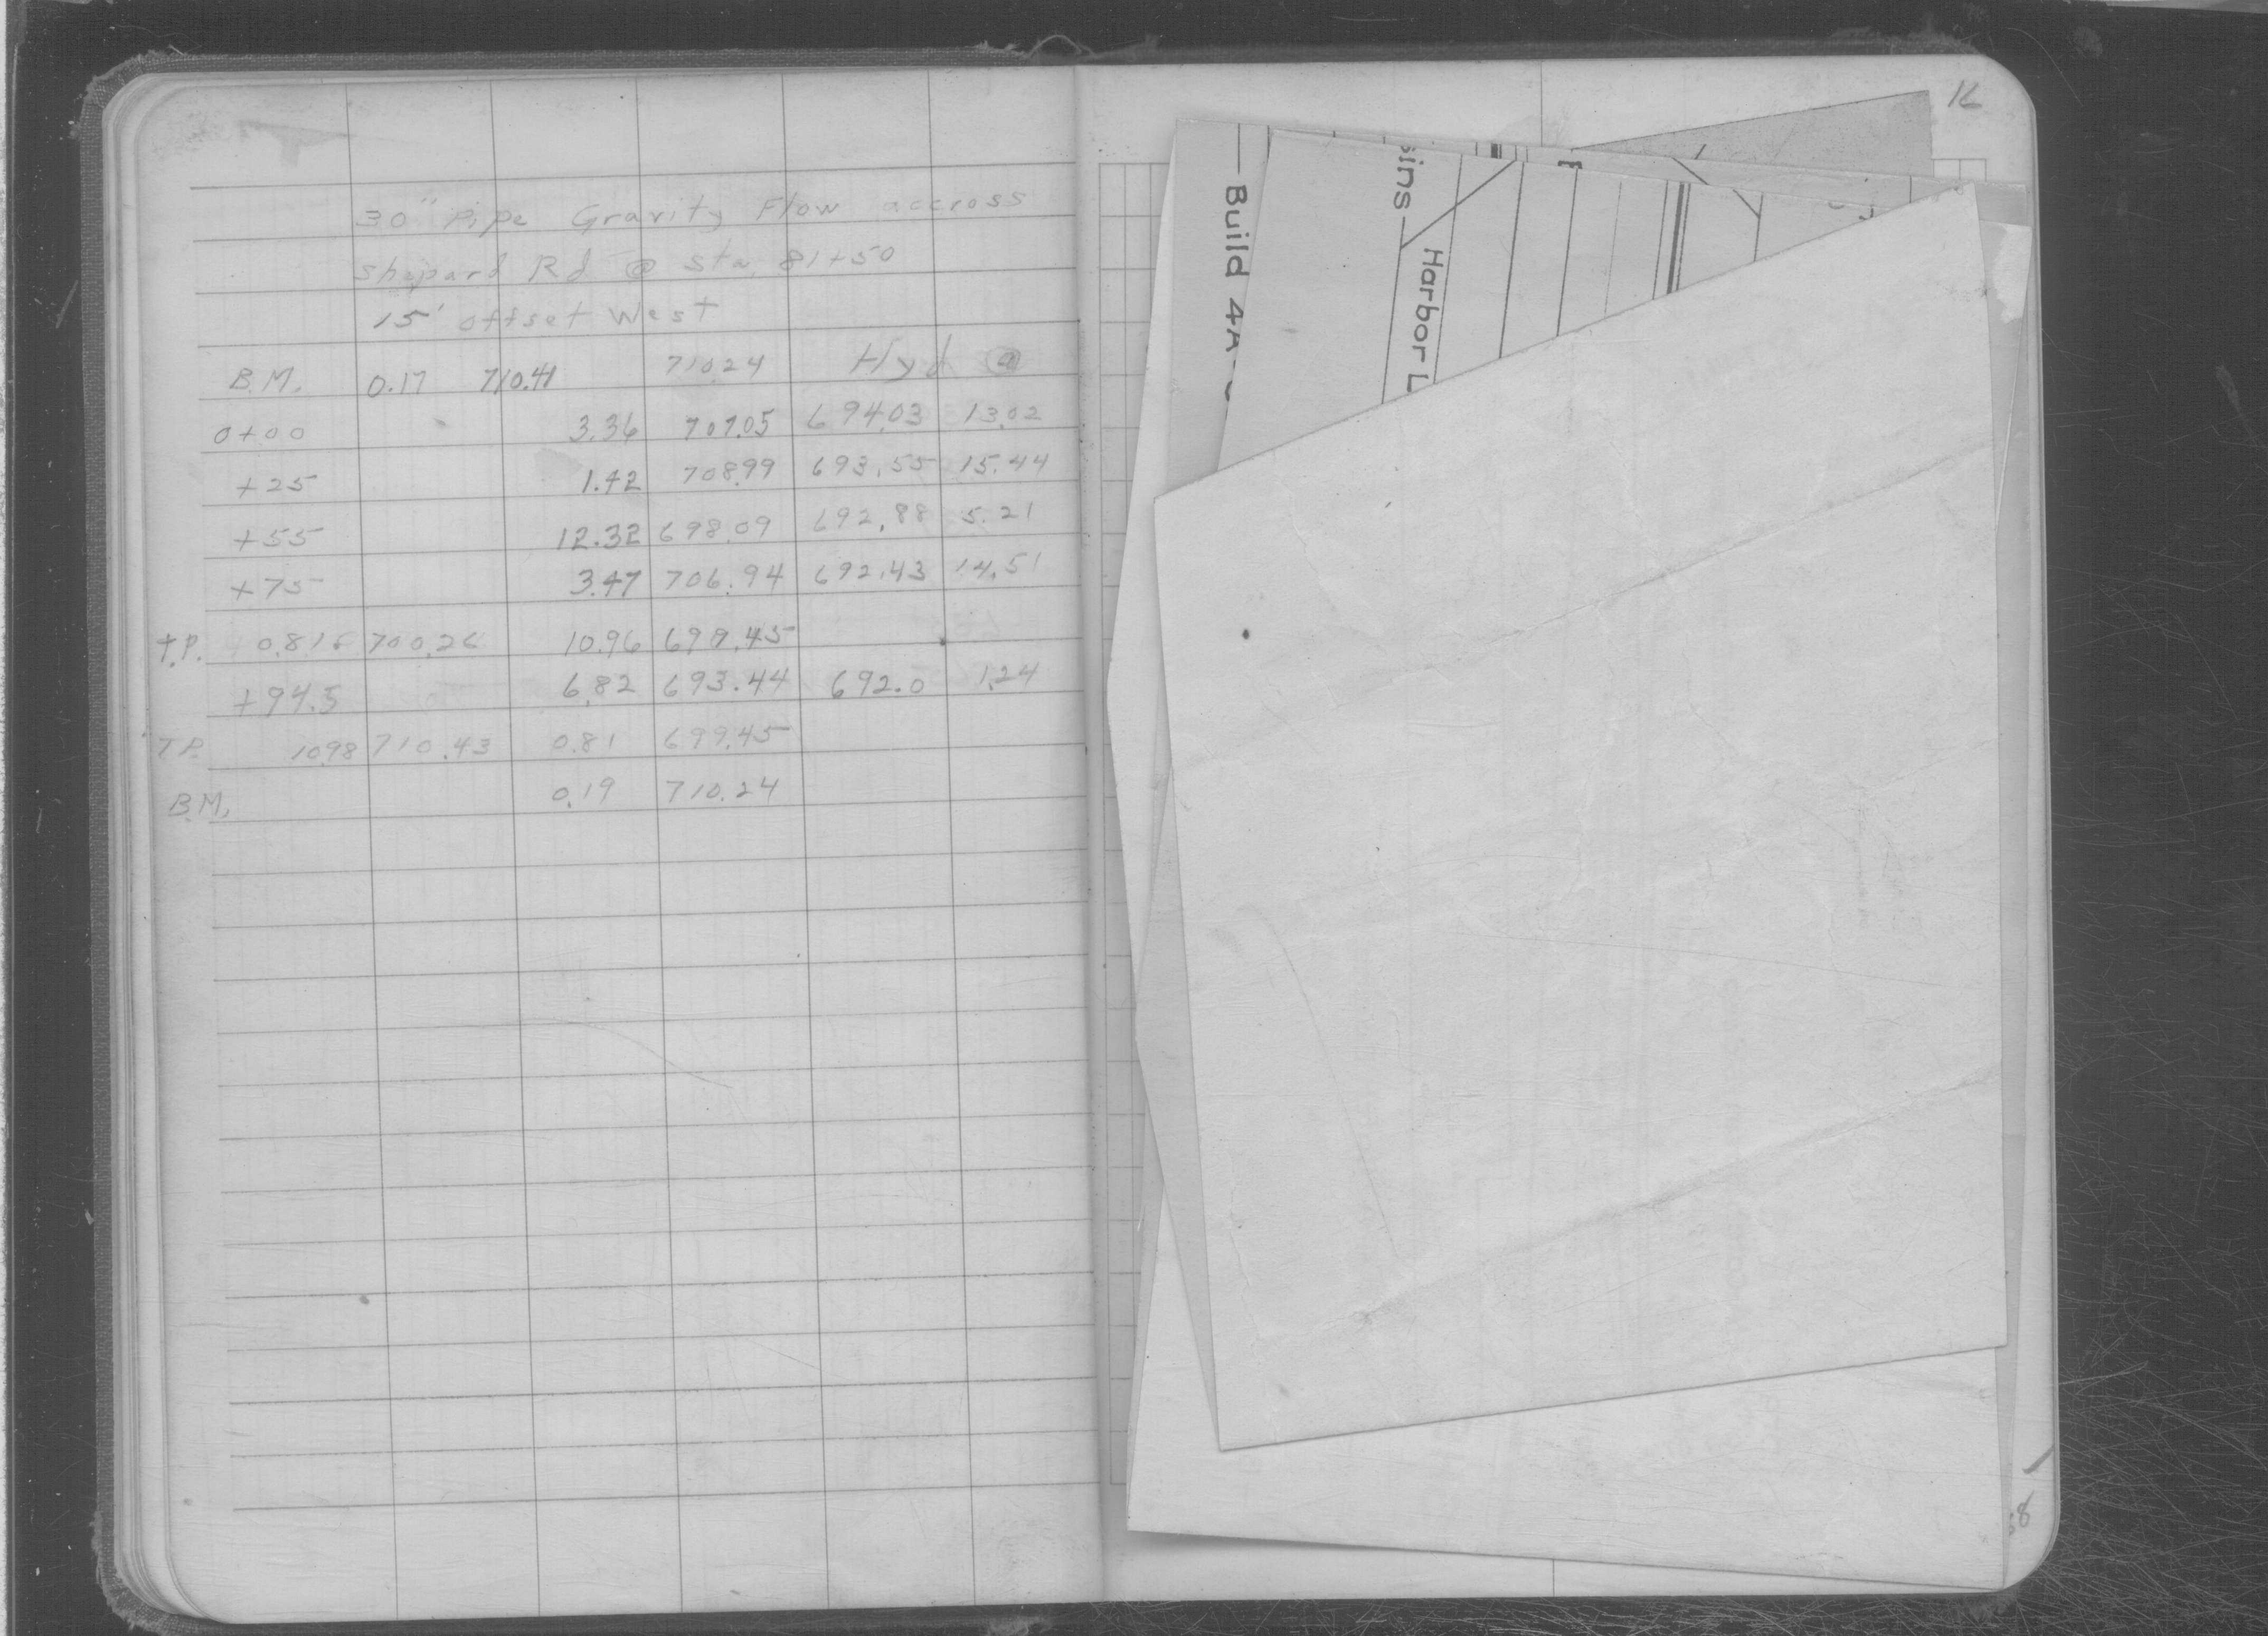 30" Pipe Gravity Flow accross
Shepard Rd @ Sta. 81+50
15' offset West
B.M. 0.17 710.41 710.24 Hyd @
0+00 3.36 707.05 694.03 13.02
+25 1.42 708.99 693.55 15.44
+55 12.32 698.09 692.88 5.21
+75 3.47 706.94 692.43 14.51
T.P. 0.81 700.26 10.96 699.45
+94.5 6.82 693.44 692.0 1.24
T.P. 10.98 710.43 0.81 699.45
B.M. 0.19 710.24
16
Build 4A
sins
Harbor L